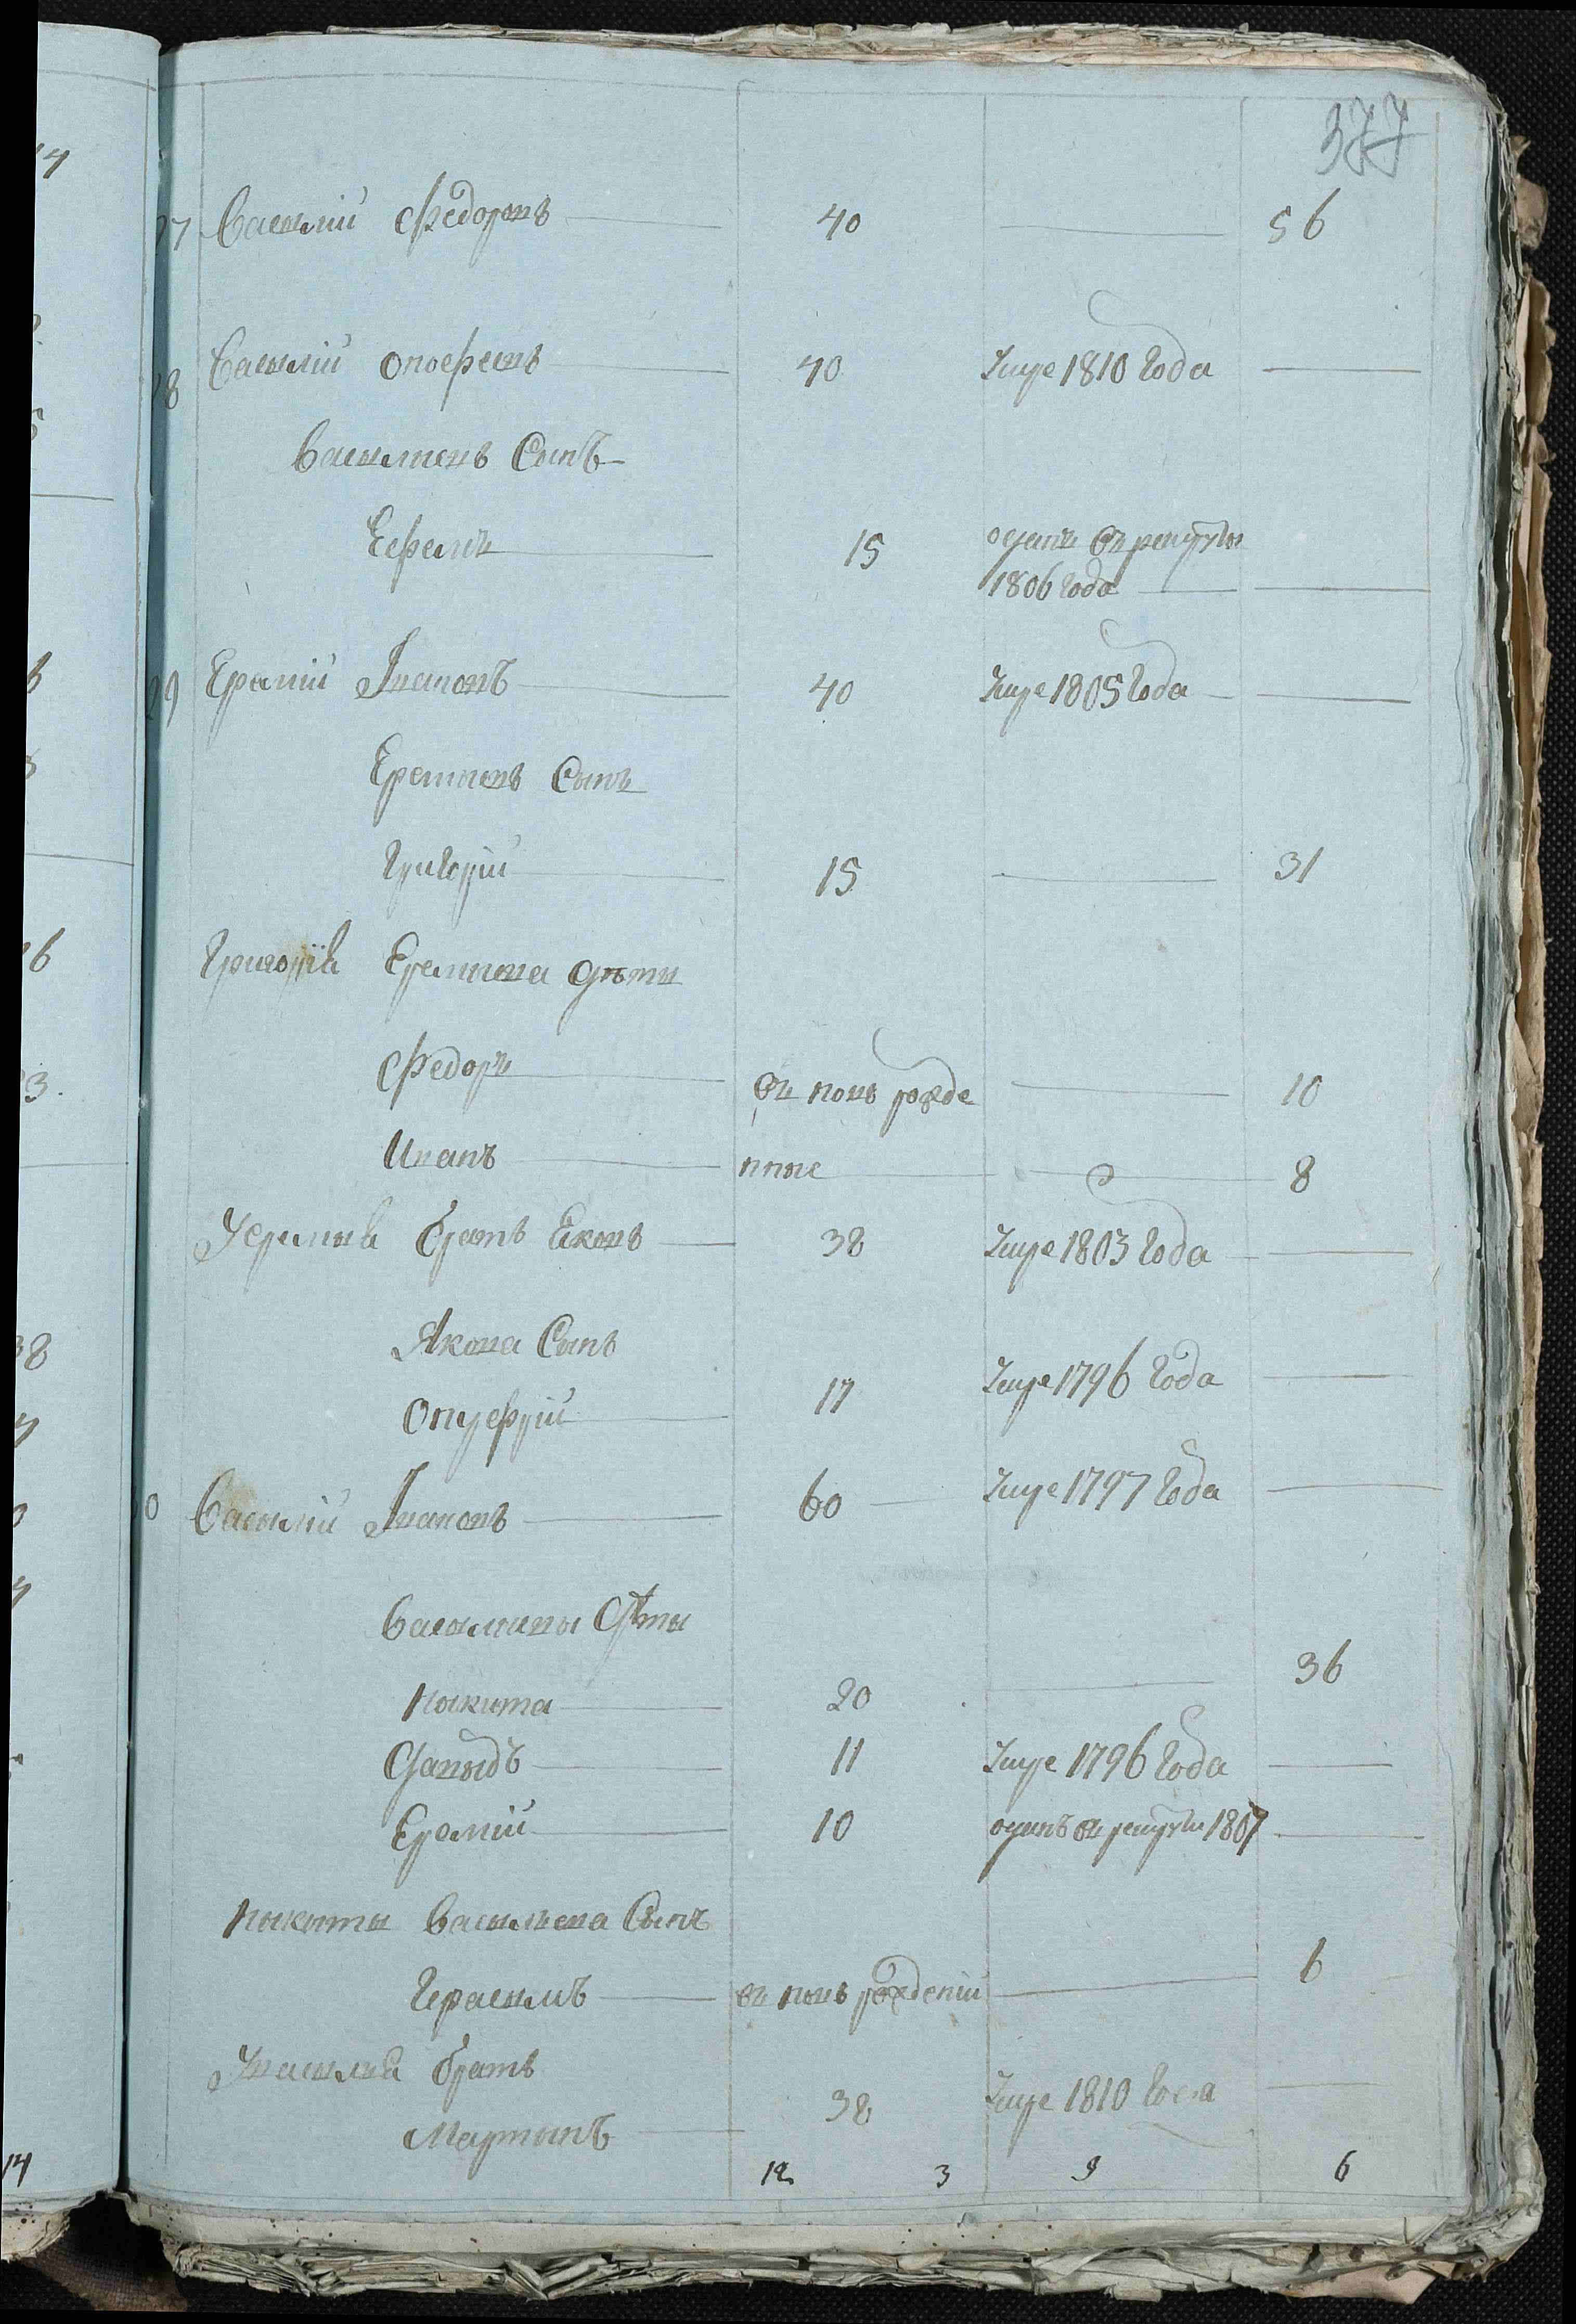 377
27 Василій Федоровъ 40 56
28 Василій Оноѳреевъ 40 Умре 1810 года
Васильевъ Сынъ
Ефремъ 15 отданъ въ рекруты
1806 года
29 Еремій Івановъ 40 Умре 1805 года
Еремиевъ Сынъ
Григорій 15 31
Григорія Еремиева дѣти
Федоръ въ новъ рожде 10
Иванъ нные 8
У Еремия братъ Яковъ 38 Умре 1803 года
Якова Сынъ
Онуфрій 17 Умре 1796 года
Василій Івановъ 60 Умре 1797 года
Васильевы дѣти
Никита 20 36
Давыдъ 11 Умре 1796 года
Еремій 10 отданъ въ рекруты 1807
Никиты Васильева Сынъ
Герасимъ въ новъ рожденій 6
У Василия братъ
Мартынъ 38 Умре 1810 года
12 3 9 6